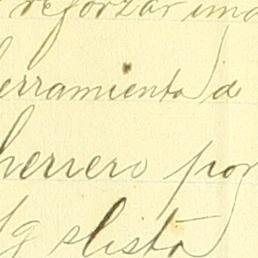 reforzar una
erramienta d
herrero por
lista